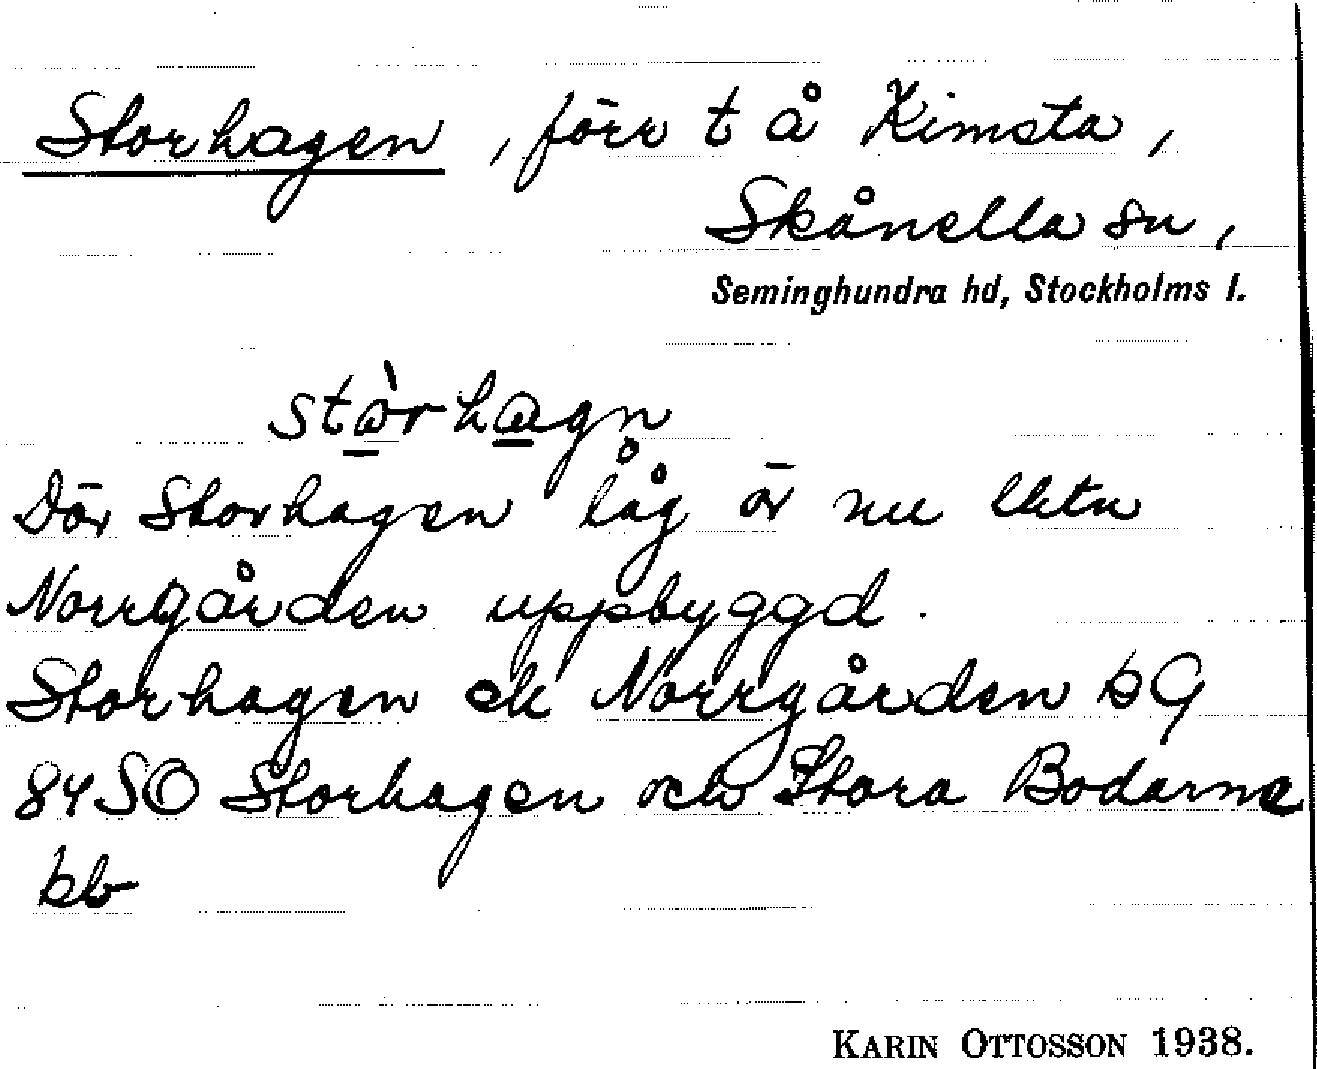 Storhagen, förr t å Kimsta,
Skånella sn,
Seminghundra hd, Stockholms l.
stòrhagn
Där Storhagen låg är nu
Norrgården uppbyggd.
Storhagen ek Norrgården b G
84 SO Storhagen och Stora Bodarna
kb
KARIN OTTOSSON 1938.